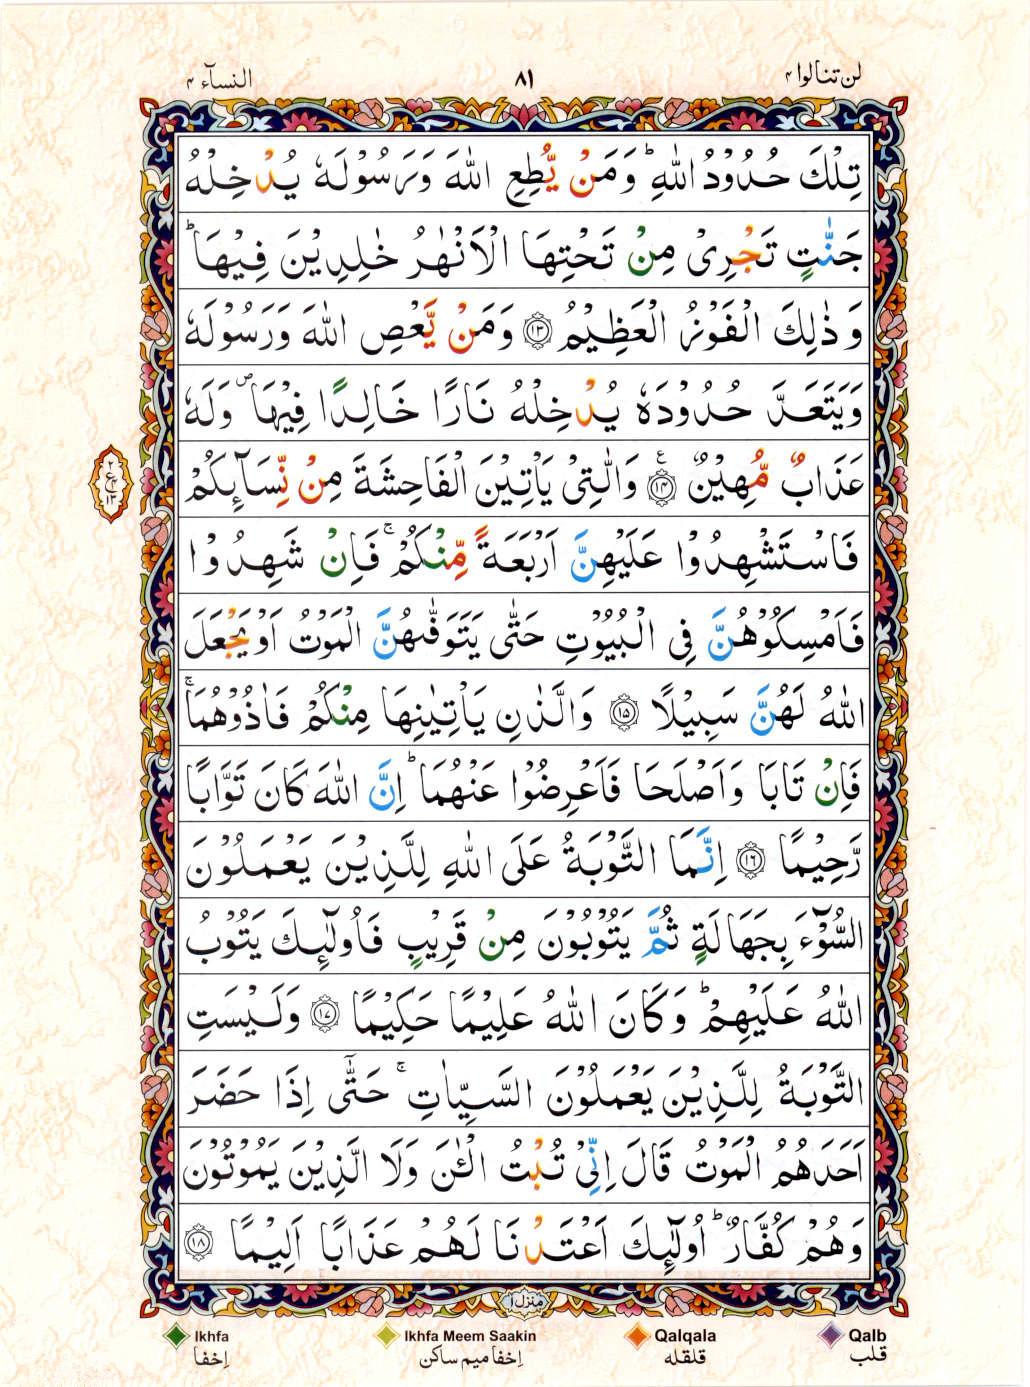 لن تنالوا ۴
۸۱
النسآء ۴
تِلْكَ حُدُوْدُ اللّٰهِ ؕ وَمَنْ یُّطِعِ اللّٰهَ وَرَسُوْلَهٗ یُدْخِلْهُ
جَنّٰتٍ تَجْرِیْ مِنْ تَحْتِهَا الْاَنْهٰرُ خٰلِدِیْنَ فِیْهَا ؕ
وَ ذٰلِكَ الْفَوْزُ الْعَظِیْمُ ﴿۱۳﴾ وَمَنْ یَّعْصِ اللّٰهَ وَرَسُوْلَهٗ
وَیَتَعَدَّ حُدُوْدَهٗ یُدْخِلْهُ نَارًا خَالِدًا فِیْهَا ۪ وَلَهٗ
عَذَابٌ مُّهِیْنٌ ﴿۱۴﴾ ع وَالّٰتِیْ یَاْتِیْنَ الْفَاحِشَةَ مِنْ نِّسَآئِكُمْ
۲
ع
۱۳
فَاسْتَشْهِدُوْا عَلَیْهِنَّ اَرْبَعَةً مِّنْكُمْ ۚ فَاِنْ شَهِدُوْا
فَاَمْسِكُوْهُنَّ فِی الْبُیُوْتِ حَتّٰی یَتَوَفّٰىهُنَّ الْمَوْتُ اَوْ یَجْعَلَ
اللّٰهُ لَهُنَّ سَبِیْلًا ﴿۱۵﴾ وَالَّذٰنِ یَاْتِیٰنِهَا مِنْكُمْ فَاٰذُوْهُمَا ۚ
فَاِنْ تَابَا وَاَصْلَحَا فَاَعْرِضُوْا عَنْهُمَا ؕ اِنَّ اللّٰهَ كَانَ تَوَّابًا
رَّحِیْمًا ﴿۱۶﴾ اِنَّمَا التَّوْبَةُ عَلَی اللّٰهِ لِلَّذِیْنَ یَعْمَلُوْنَ
السُّوْٓءَ بِجَهَالَةٍ ثُمَّ یَتُوْبُوْنَ مِنْ قَرِیْبٍ فَاُولٰٓئِكَ یَتُوْبُ
اللّٰهُ عَلَیْهِمْ ؕ وَكَانَ اللّٰهُ عَلِیْمًا حَكِیْمًا ﴿۱۷﴾ وَلَیْسَتِ
التَّوْبَةُ لِلَّذِیْنَ یَعْمَلُوْنَ السَّیِّاٰتِ ۚ حَتّٰۤی اِذَا حَضَرَ
اَحَدَهُمُ الْمَوْتُ قَالَ اِنِّیْ تُبْتُ الْـٰٔنَ وَلَا الَّذِیْنَ یَمُوْتُوْنَ
وَهُمْ كُفَّارٌ ؕ اُولٰٓئِكَ اَعْتَدْنَا لَهُمْ عَذَابًا اَلِیْمًا ﴿۱۸﴾
منزل ۱
Ikhfa Ikhfa Meem Saakin Qalqala Qalb
اِخفا اِخفا میم ساکن قلقله قلب